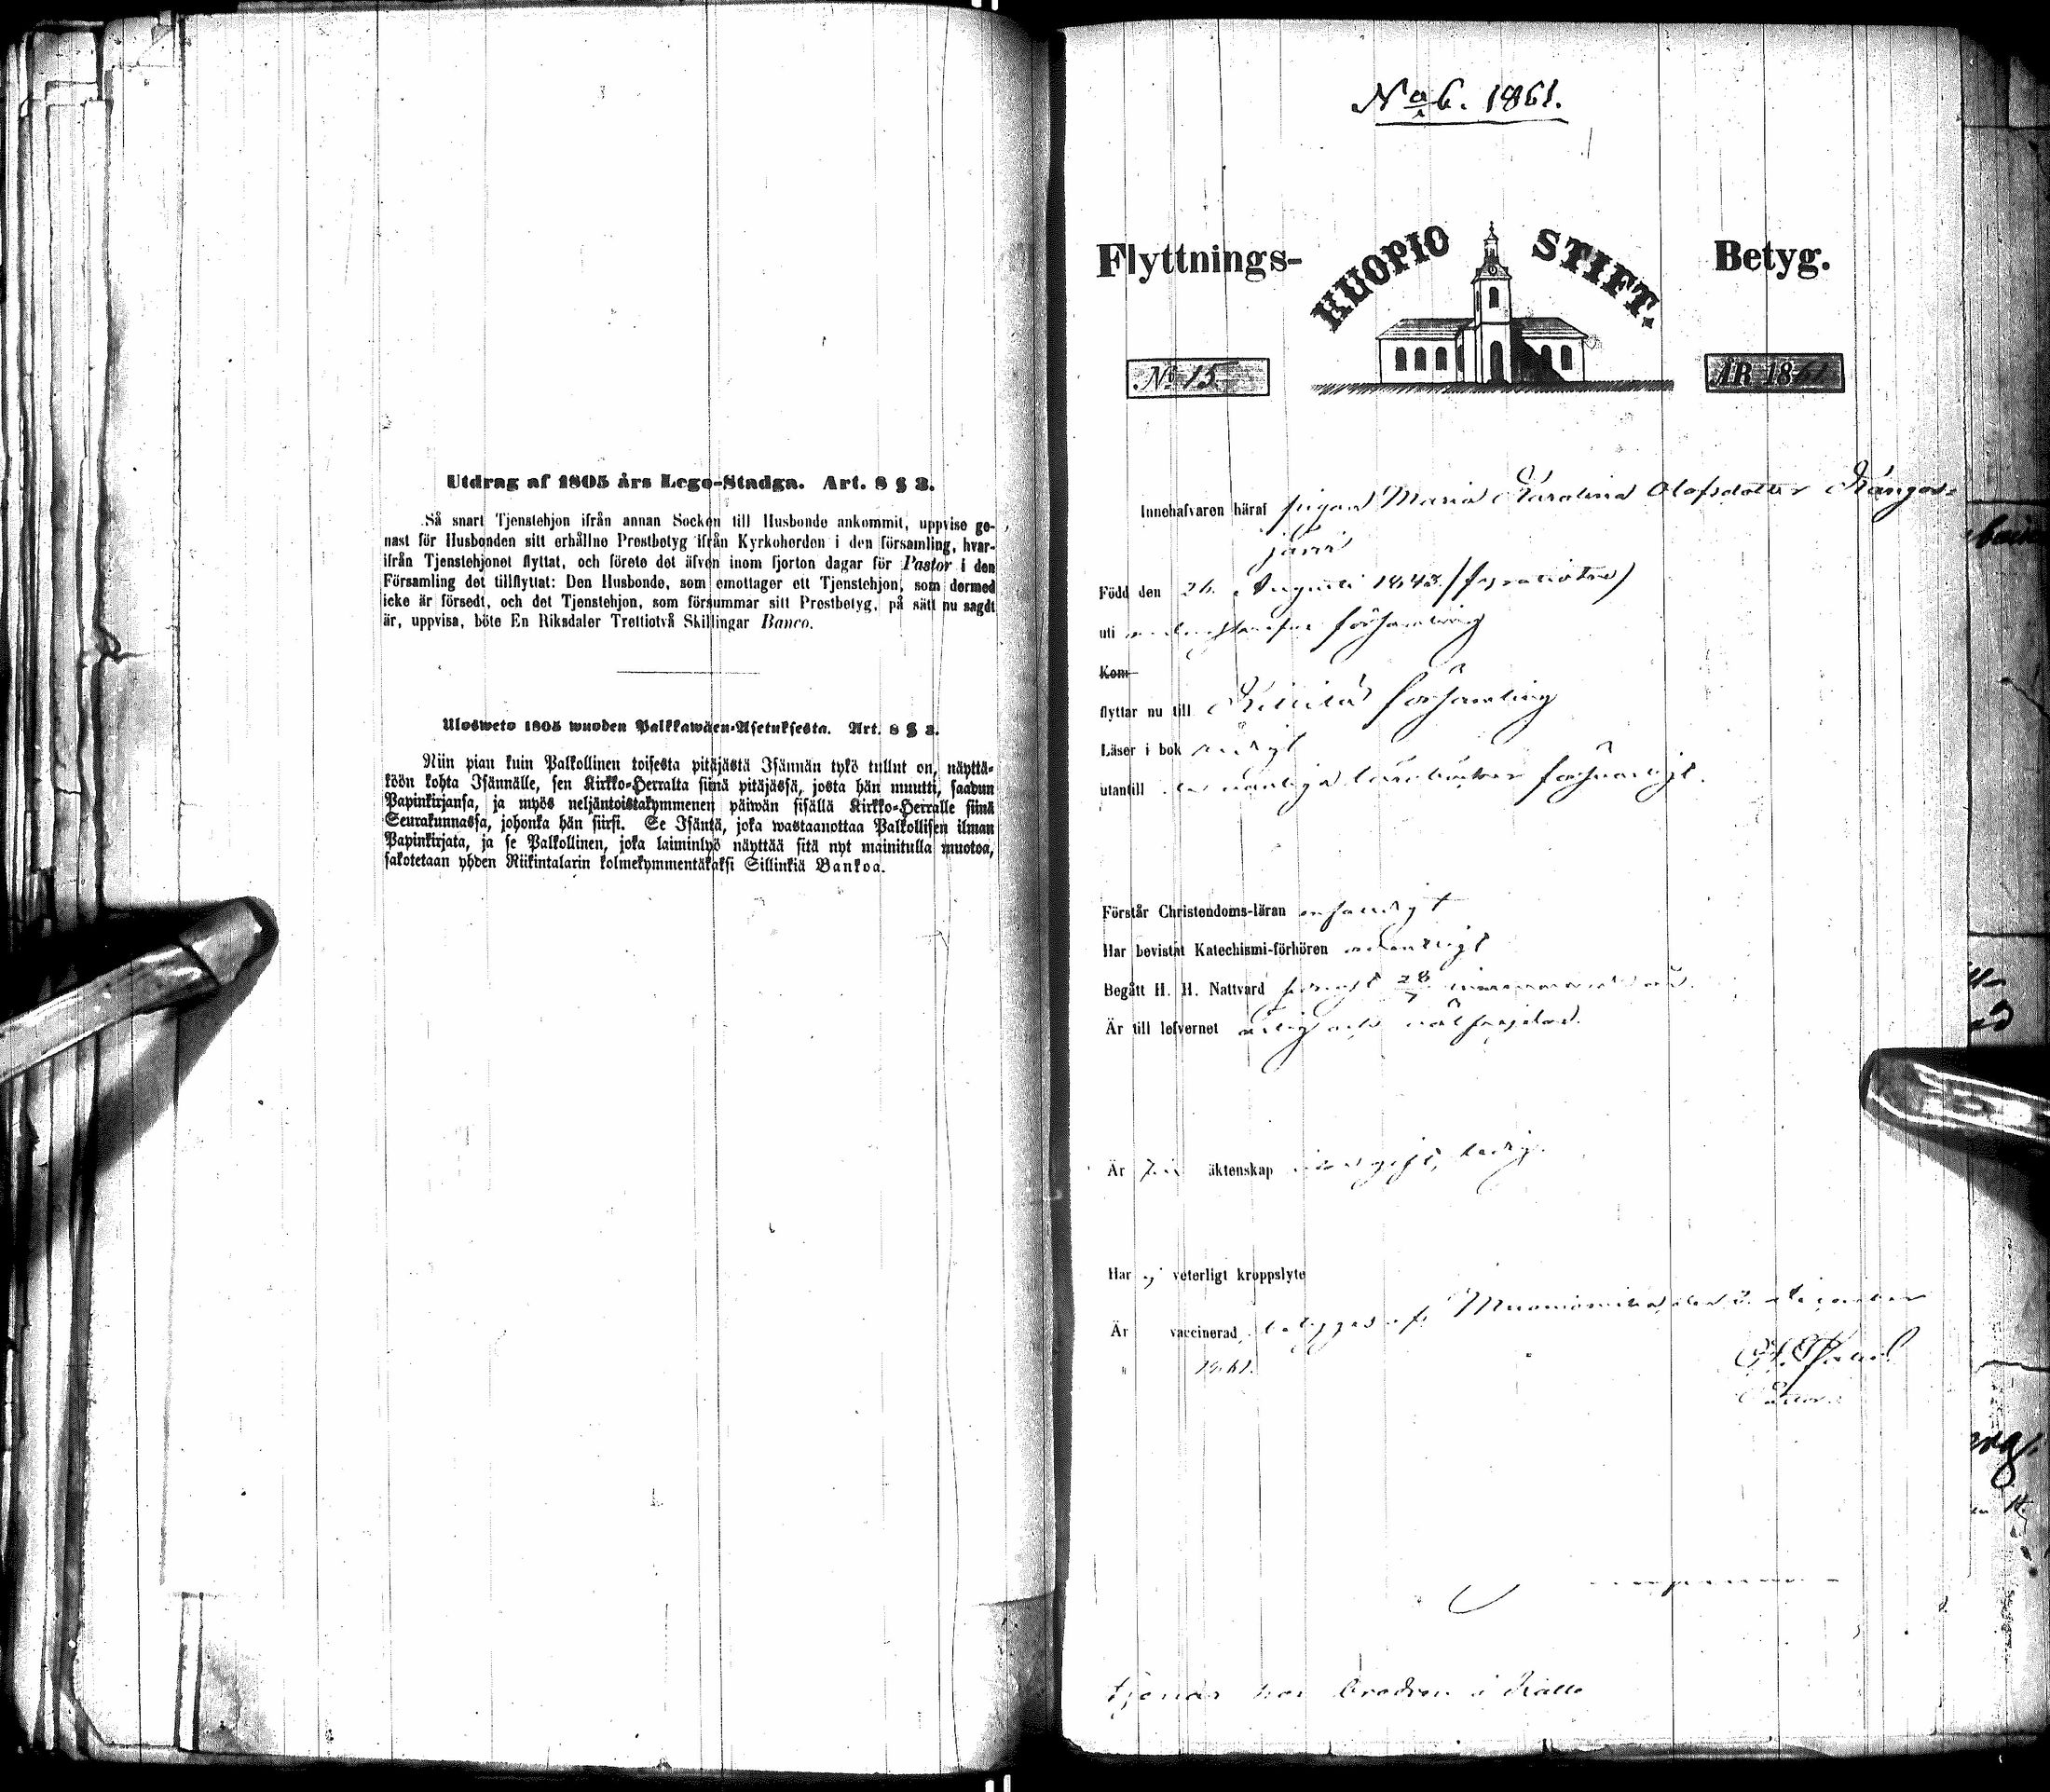 Utdrag af 1805 års Lego-Stadga. Art. 8 § 3.
Så snart Tjenstehjon ifrån annan Socken till Husbonde ankommit, uppvise ge-
nast för Husbonden sitt erhållne Prestbetyg ifrån Kyrkoherden i den församling, hvar-
ifrån Tjenstehjonet flyttat, och förete det äfven inom fjorton dagar för Pastor i den
Församling det tillflyttat: Den Husbonde, som emottager ett Tjenstehjon, som dermed
icke är försedt, och det Tjenstehjon, som försummar sitt Prestbetyg, på sätt nu sagdt
är, uppvisa, böte En Riksdaler Trettiotvå Skillingar Banco.
Ulosweto 1805 wuoden Palkkawäen-Asetuksesta. Art. 8 § 3.
Niin pian kuin Palkollinen toisesta pitäjästä Isännän tykö tullut on, näyttä-
köön kohta Isännälle, sen Kirkko-Herralta siinä pitäjässä, josta hän muutti, saadun
Papinkirjansa, ja myös neljäntoistakymmenen päiwän sisällä Kirkko-Herralle siinä
Seurakunnassa, johonka hän siirsi. Se Isäntä, joka wastaanottaa Palkollisen ilman
Papinkirjata, ja se Palkollinen, joka laiminlyö näyttää sitä nyt mainitulla muotoa,
sakotetaan yhden Riikintalarin kolmekymmentäkaksi Sillinkiä Bankoa.
No 6. 1861.
Flyttnings- KUOPIO STIFT. Betyg.
No 15 ÅR 1861
Innehafvaren häraf pigan Maria Karolina Olofsdotter Kangos-
järvi
Född den 26. Augusti 1843
uti församling
Kom
flyttar nu till Kittilä församling
Läser i bok
utantill försvarligt.
Förstår Christendoms-läran
Har bevistat Katechismi-förhören ordentligt
Begått H. H. Nattvard senast 28/7
Är till lefvernet ärlig och välfrejdad.
Är äktenskap ledig.
Har ej veterligt kroppslyte
Är vaccinerad, betygges af Muonioniska den December
1861.
Pastor.
tjenar hos brodren i